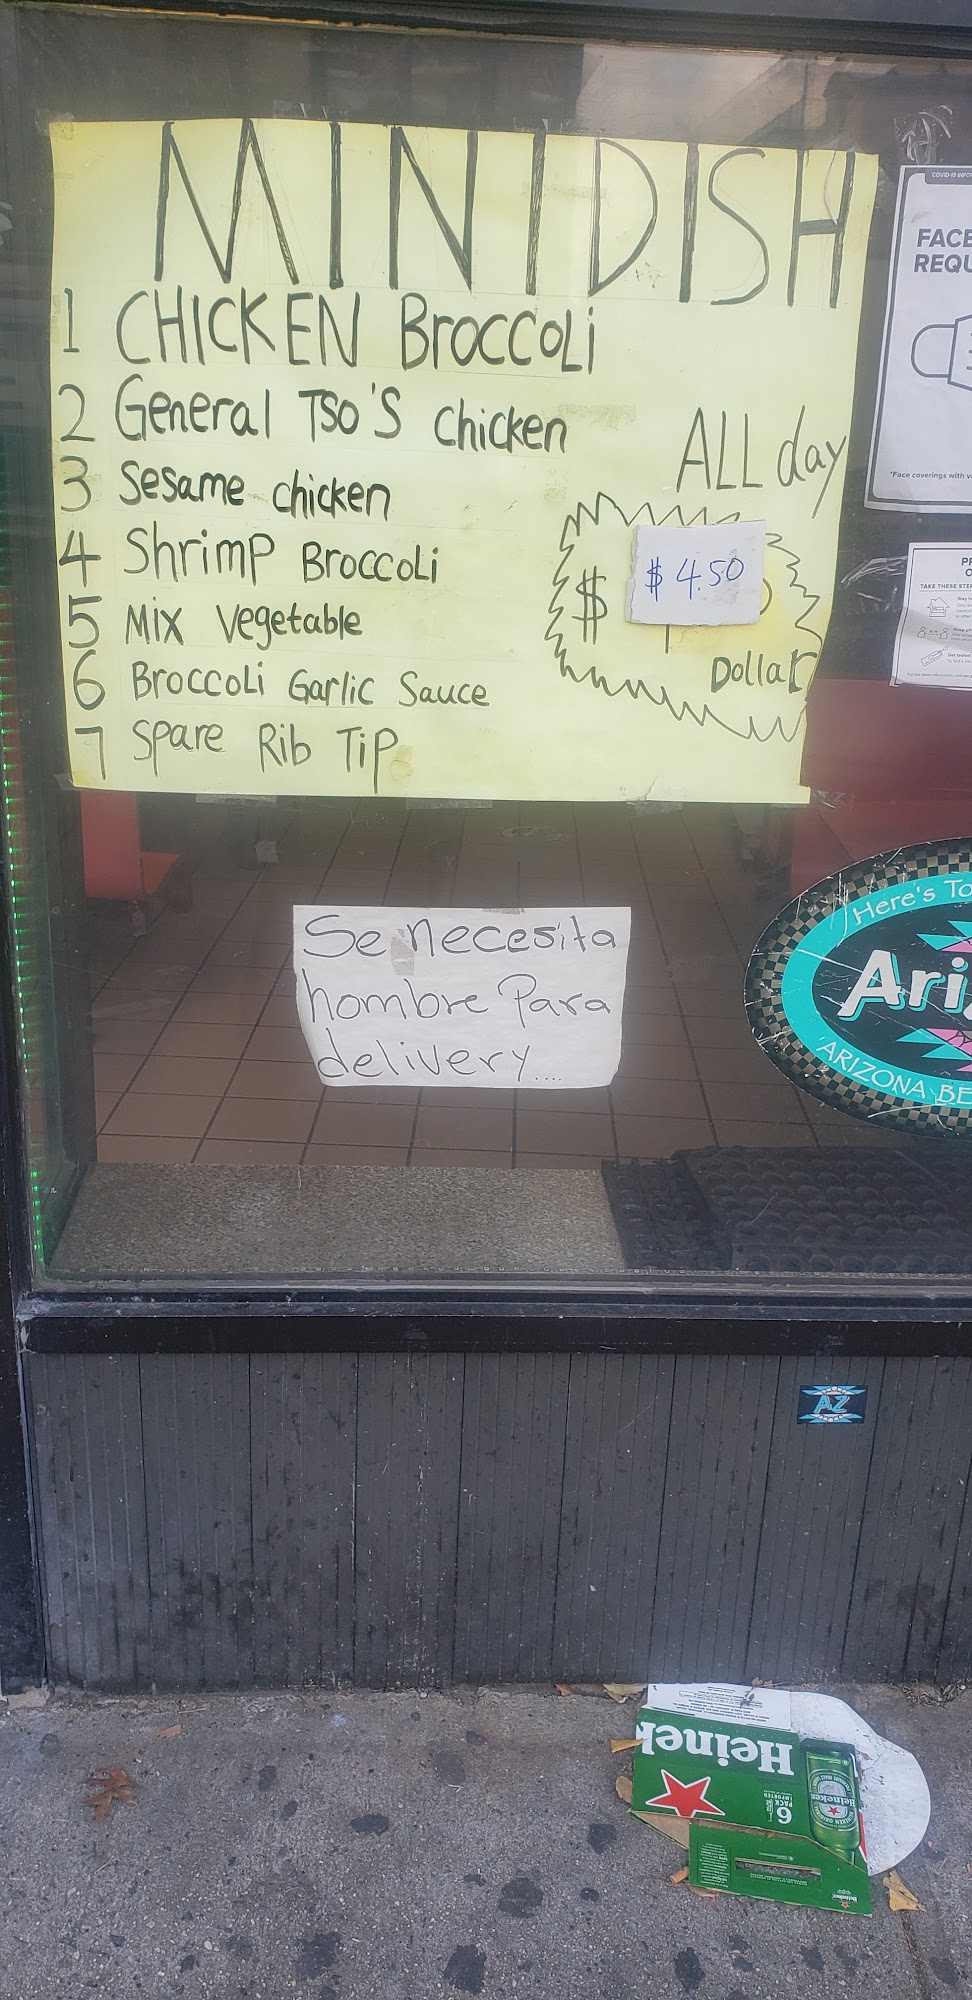 MINI DISH
1 CHICKEN Broccoli
2 General TSO'S chicken
3 Sesame chicken
4 Shrimp Broccoli
5 Mix Vegetable
6 Broccoli Garlic Sauce
7 Spare Rib Tip
ALL day
$ 4.50
$
Dollar
Se necesita
hombre Para
delivery....
COVID-19
FACE
REQU
*Face coverings with
TAKE THESE STE
Here's To
Ari
ARIZONA BE
AZ
Heinek
6
PACK
IMPORTED
Heineken